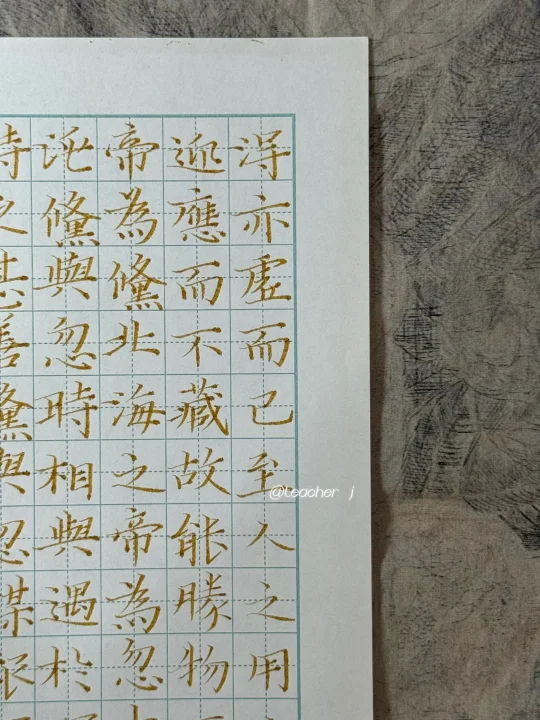 得亦虛而已至人之用
迎應而不藏故能勝物
帝為儵北海之帝為忽
沌儵與忽時相與遇於
待之甚善儵與忽謀報
@teacher j